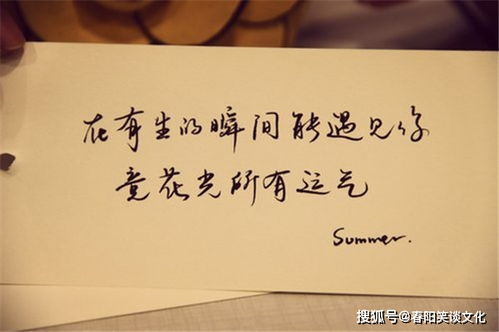 在有生的瞬间能遇见你
竟花光所有运气
Summer.
搜狐号@春阳笑谈文化